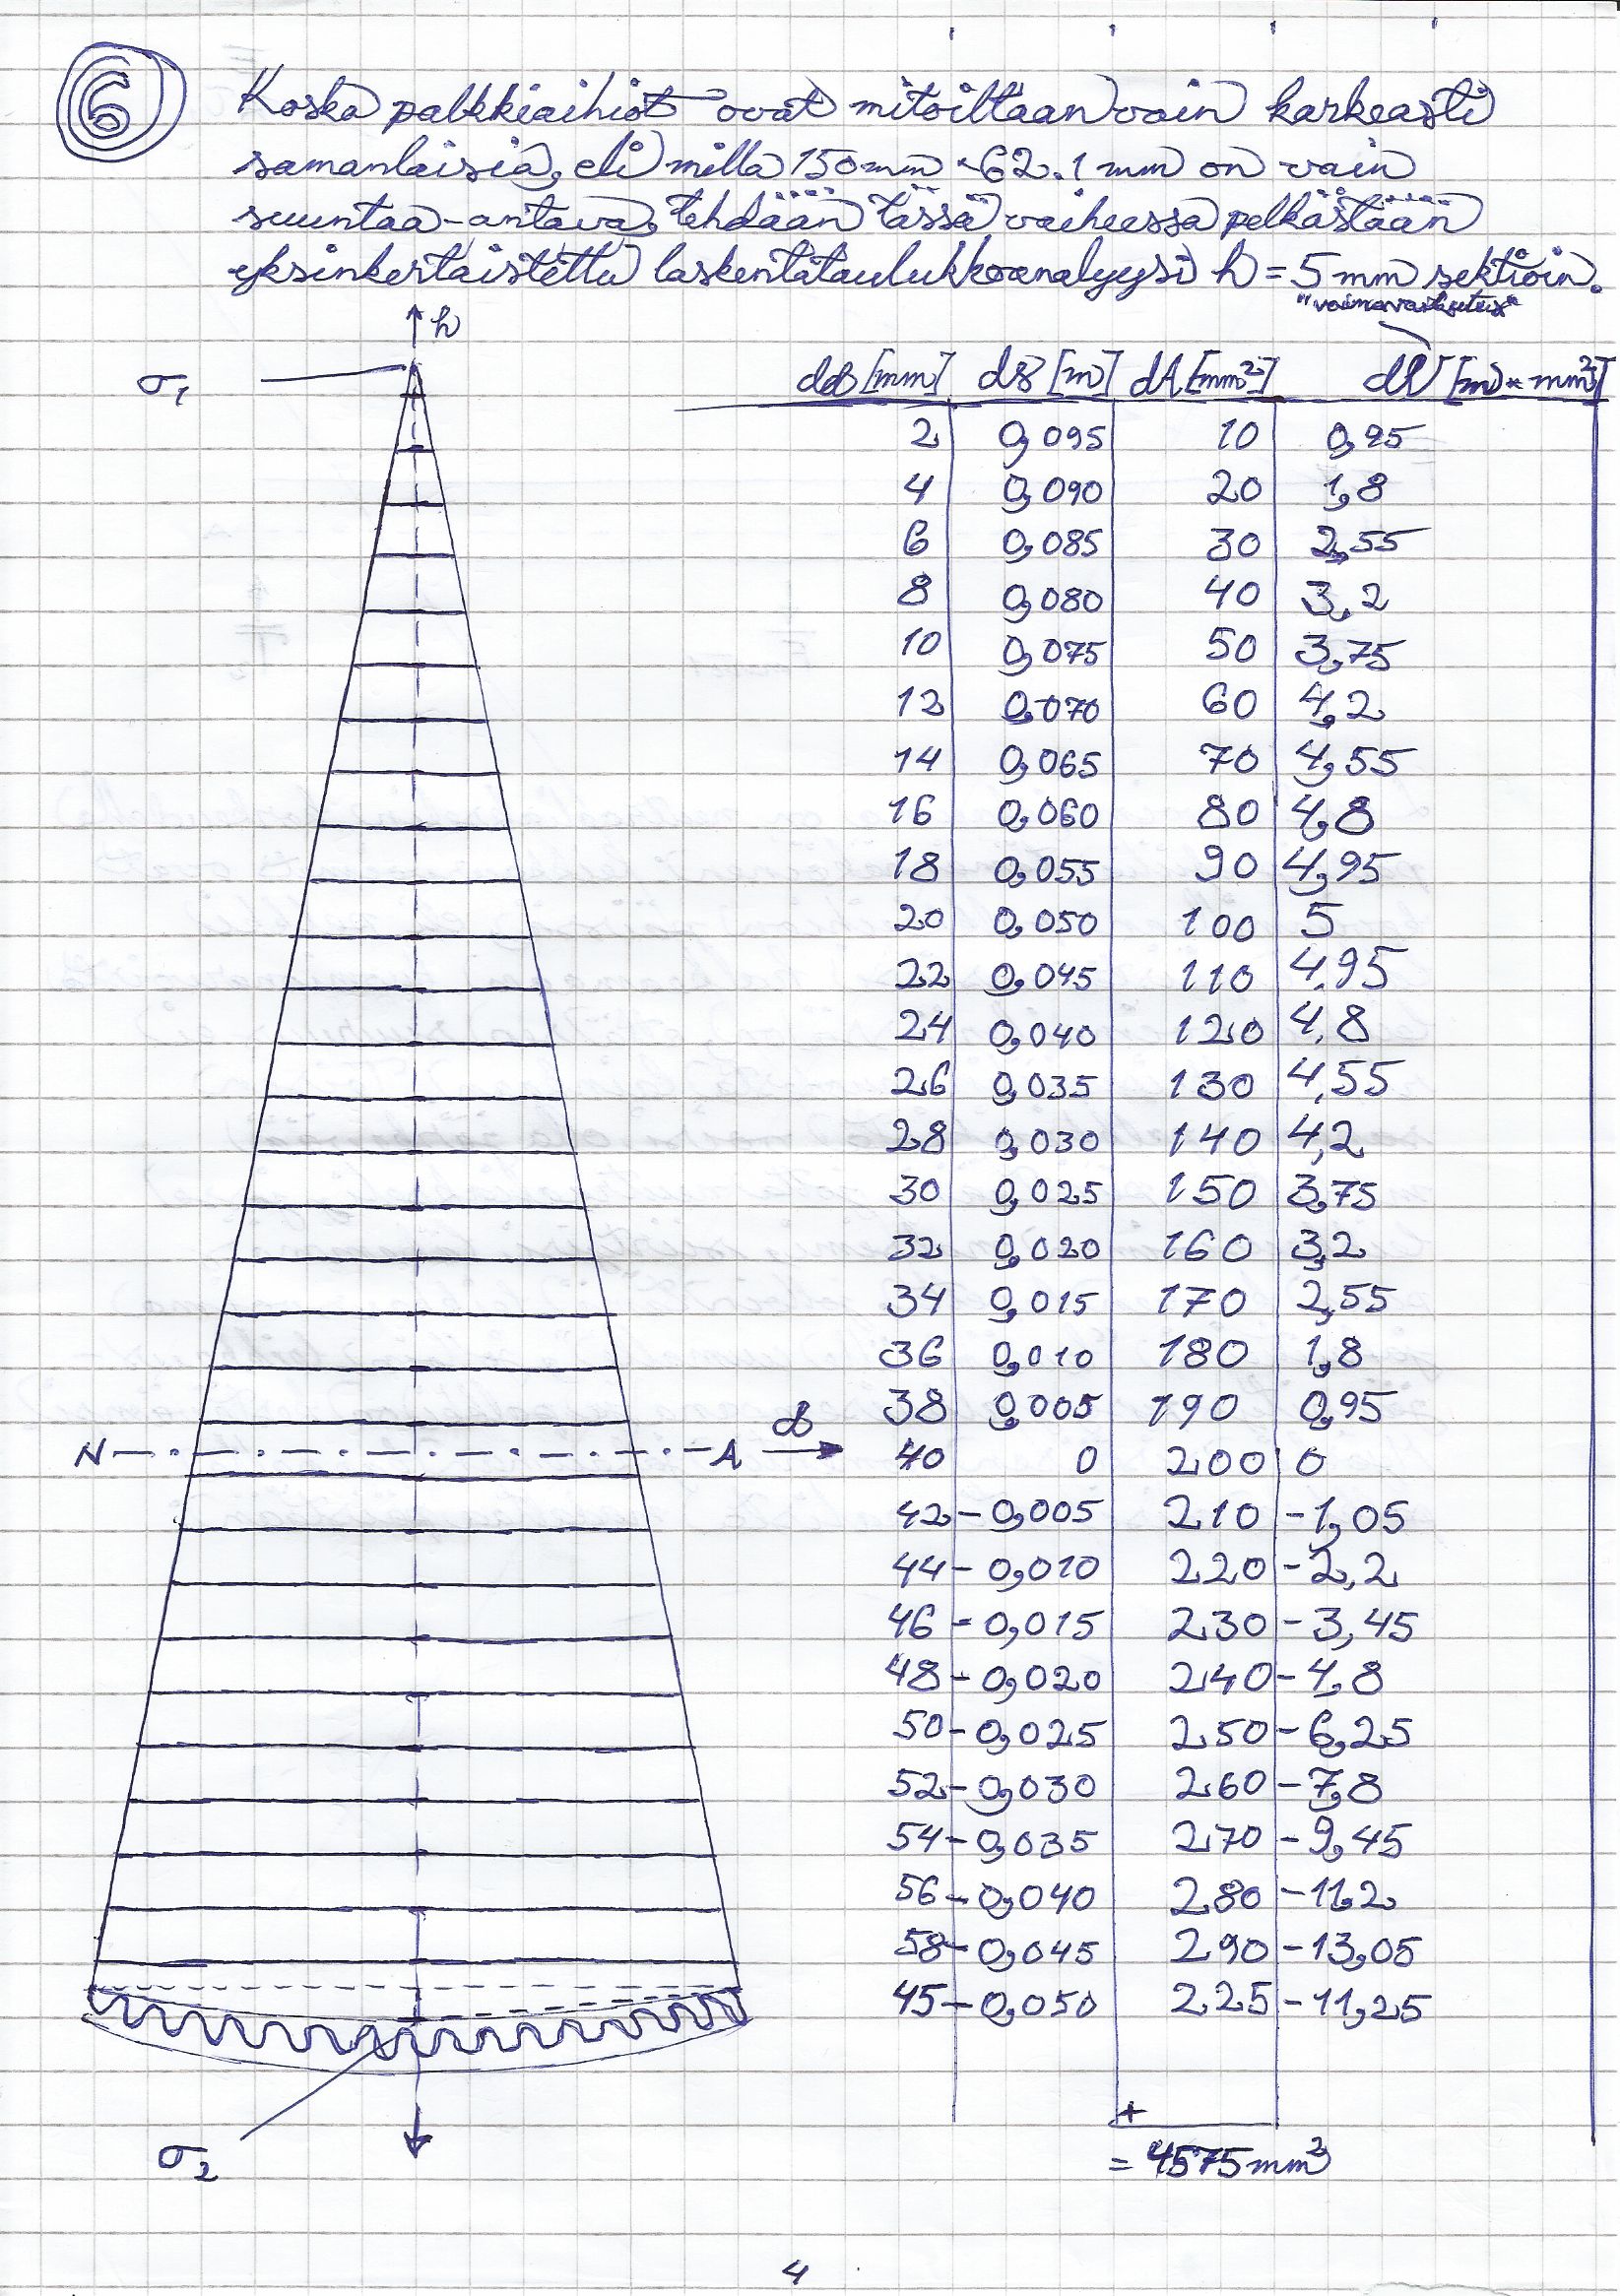 6
Koska palkkiaihiot ovat mitoiltaan vain karkeasti
samanlaisia, eli milla 150mm × 62.1 mm on vain
suuntaa-antava, tehdään tässä vaiheessa pelkästään
yksinkertaistettu laskentataulukkoanalyysi h = 5 mm sektioin.
"voimavaikutus"
h
σ1
[mm] [m] dA [mm²] dV [m × mm²]
2 0,095 10 0,95
4 0,090 20 1,8
6 0,085 30 2,55
8 0,080 40 3,2
10 0,075 50 3,75
12 0,070 60 4,2
14 0,065 70 4,55
16 0,060 80 4,8
18 0,055 90 4,95
20 0,050 100 5
22 0,045 110 4,95
24 0,040 120 4,8
26 0,035 130 4,55
28 0,030 140 4,2
30 0,025 150 3,75
32 0,020 160 3,2
34 0,015 170 2,55
36 0,010 180 1,8
38 0,005 190 0,95
N A
40 0 200 0
42 -0,005 210 -1,05
44 -0,010 220 -2,2
46 -0,015 230 -3,45
48 -0,020 240 -4,8
50 -0,025 250 -6,25
52 -0,030 260 -7,8
54 -0,035 270 -9,45
56 -0,040 280 -11,2
58 -0,045 290 -13,05
45 -0,050 225 -11,25
+
σ2
= 4575mm²
4